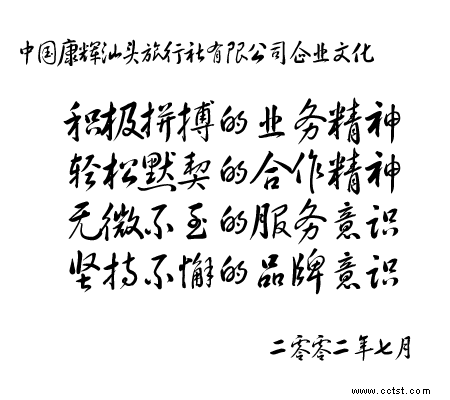 中国康辉汕头旅行社有限公司企业文化
积极拼搏的业务精神
轻松默契的合作精神
无微不至的服务意识
坚持不懈的品牌意识
二零零二年七月
www.cctst.com